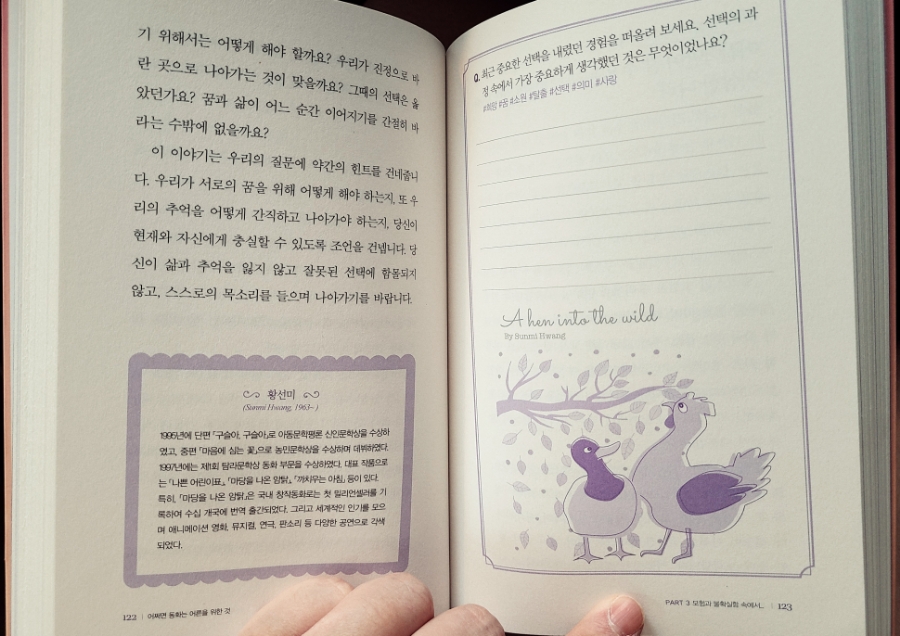 기 위해서는 어떻게 해야 할까요? 우리가 진정으로 바
란 곳으로 나아가는 것이 맞을까요? 그때의 선택은 옳
았던가요? 꿈과 삶이 어느 순간 이어지기를 간절히 바
라는 수밖에 없을까요?
이 이야기는 우리의 질문에 약간의 힌트를 건네줍니
다. 우리가 서로의 꿈을 위해 어떻게 해야 하는지, 또 우
리의 추억을 어떻게 간직하고 나아가야 하는지, 당신이
현재와 자신에게 충실할 수 있도록 조언을 건넵니다. 당
신이 삶과 추억을 잃지 않고 잘못된 선택에 함몰되지
않고, 스스로의 목소리를 들으며 나아가기를 바랍니다.
황선미
(Sunmi Hwang, 1963~)
1995년에 단편 「구슬아, 구슬아」로 아동문학평론 신인문학상을 수상하
였고, 중편 「마음에 심는 꽃」으로 농민문학상을 수상하며 데뷔하였다.
1997년에는 제1회 탐라문학상 동화 부문을 수상하였다. 대표 작품으로
는 『나쁜 어린이표』, 『마당을 나온 암탉』, 『까치우는 아침』 등이 있다.
특히, 『마당을 나온 암탉』은 국내 창작동화로는 첫 밀리언셀러를 기
록하여 수십 개국에 번역 출간되었다. 그리고 세계적인 인기를 모으
며 애니메이션 영화, 뮤지컬, 연극, 판소리 등 다양한 공연으로 각색
되었다.
122 | 어쩌면 동화는 어른을 위한 것
Q. 최근 중요한 선택을 내렸던 경험을 떠올려 보세요. 선택의 과
정 속에서 가장 중요하게 생각했던 것은 무엇이었나요?
#희망 #꿈 #소원 #탈출 #선택 #의미 #사랑
A hen into the wild
By Sunmi Hwang
PART 3 모험과 불확실함 속에서... | 123